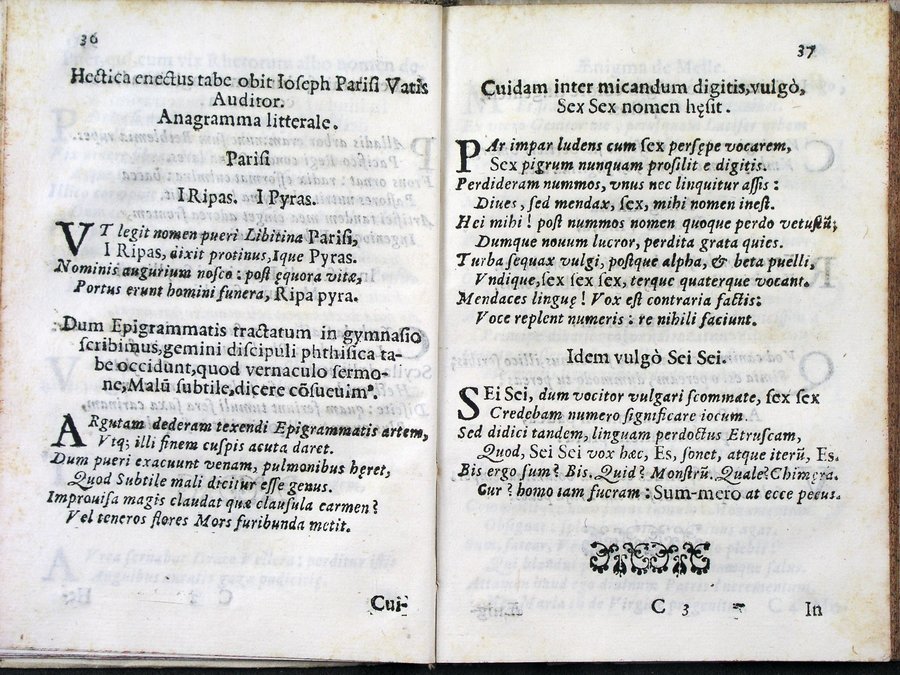 36
Hectica enectus tabe obit Ioseph Parisi Vatis
Auditor.
Anagramma litterale.
Parisi
I Ripas. I Pyras.
VT legit nomen pueri Libitina Parisi,
I Ripas, dixit protinus, Ique Pyras.
Nominis augurium nosco: post ęquora vitæ,
Portus erunt homini funera, Ripa pyra.
Dum Epigrammatis tractatum in gymnasio
scribimus, gemini discipuli phthisica ta-
be occidunt, quod vernaculo sermo-
ne, Malũ subtile, dicere cõsueuimꝰ.
ARgutam dederam texendi Epigrammatis artem,
Vtq; illi finem cuspis acuta daret.
Dum pueri exacuunt venam, pulmonibus hęret,
Quod Subtile mali dicitur esse genus.
Improuisa magis claudat quæ clausula carmen?
Vel teneros flores Mors furibunda metit.
Cui-
37
Cuidam inter micandum digitis, vulgò,
Sex Sex nomen hęsit.
PAr impar ludens cum sex persępe vocarem,
Sex pigrum nunquam prosilit e digitis.
Perdideram nummos, vnus nec linquitur assis:
Diues, sed mendax, sex, mihi nomen inest.
Hei mihi! post nummos nomen quoque perdo vetustũ;
Dumque nouum lucror, perdita grata quies.
Turba sequax vulgi, postque alpha, & beta puelli,
Vndique, sex sex sex, terque quaterque vocant.
Mendaces linguę! Vox est contraria factis:
Voce replent numeris: re nihili faciunt.
Idem vulgò Sei Sei.
SEi Sei, dum vocitor vulgari scommate, sex sex
Credebam numero significare iocum.
Sed didici tandem, linguam perdoctus Etruscam,
Quod, Sei Sei vox hæc, Es, sonet, atque iterũ, Es.
Bis ergo sum? Bis. Quid? Monstrũ. Quale? Chimęra.
Cur? homo iam fueram: Sum-mero at ecce pecus.
C 3
In